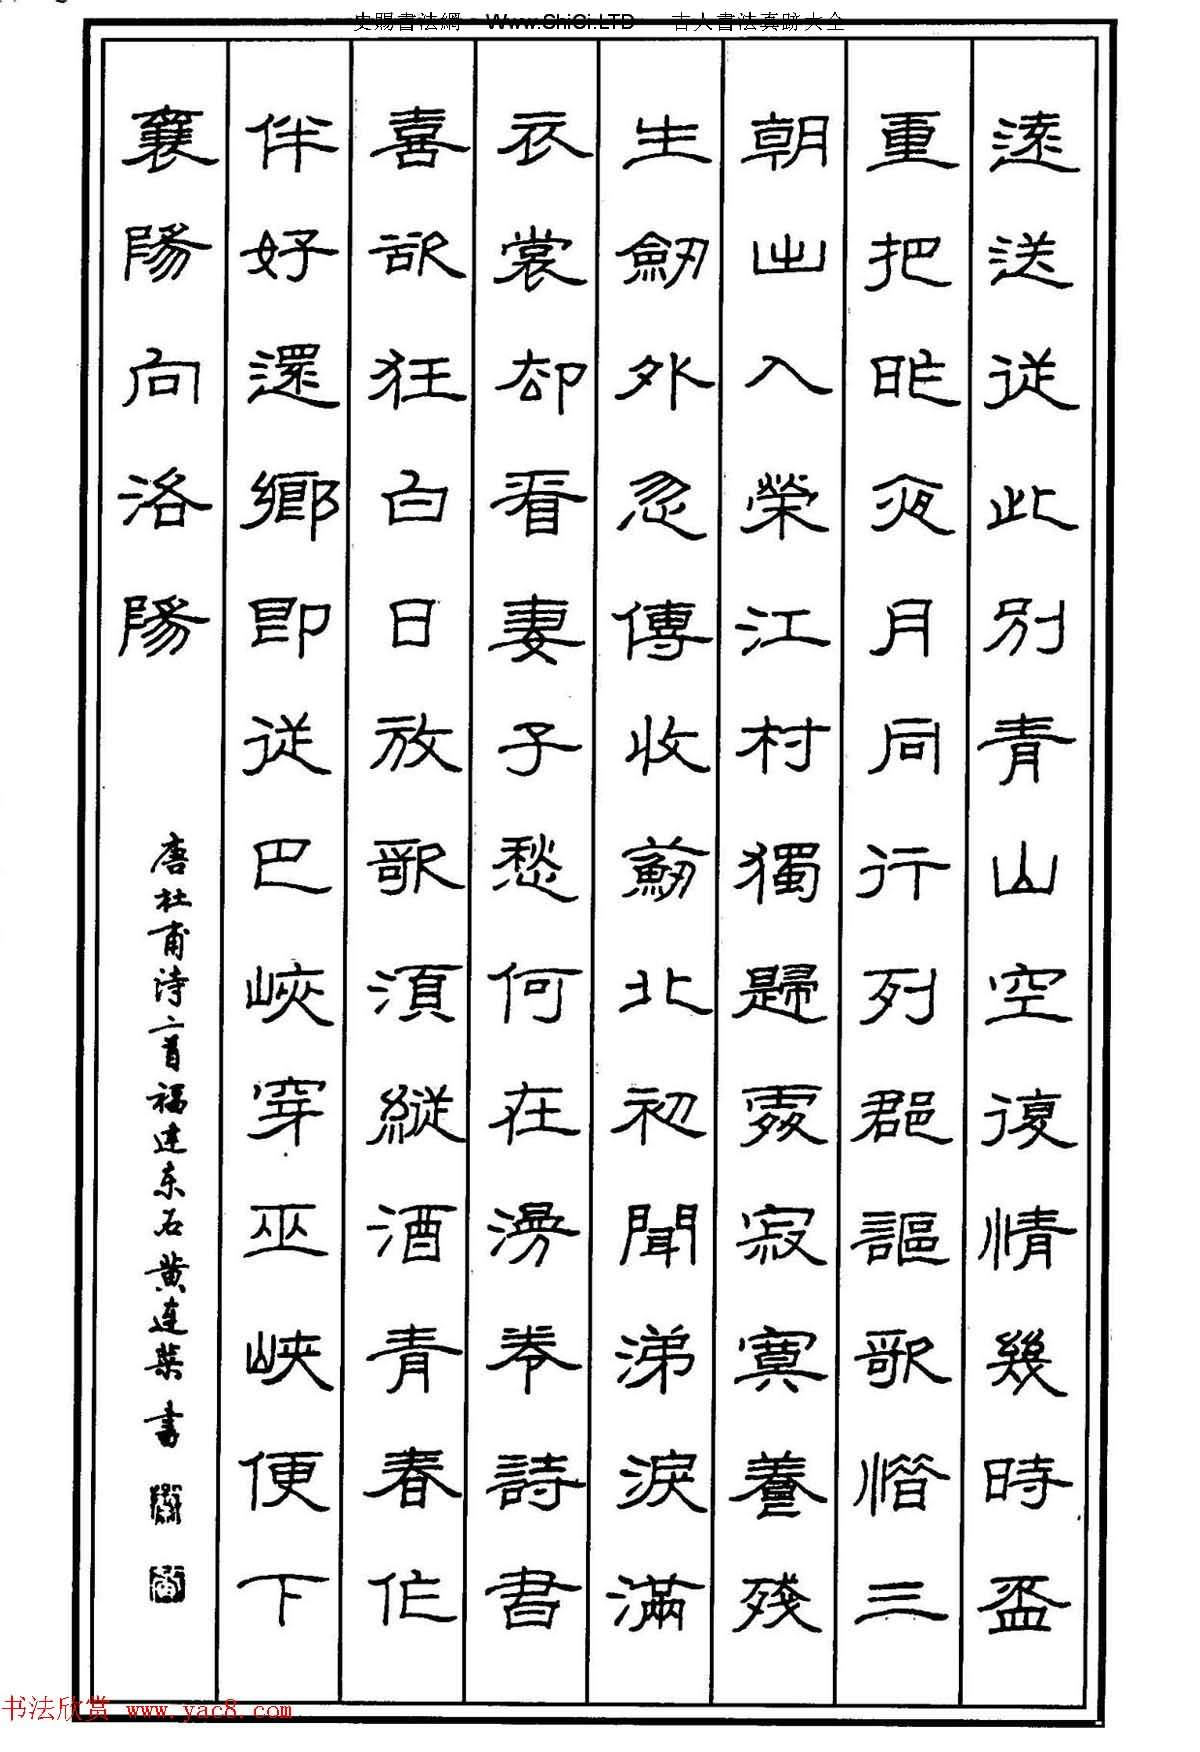 史賜書法網 - Www.ShiCi.LTD - 古人書法真跡大全
遠送從此別青山空復情幾時盃
重把昨夜月同行列郡謳歌惜三
朝出入榮江村獨歸處寂寞養殘
生劒外忽傳收薊北初聞涕淚滿
衣裳却看妻子愁何在漫卷詩書
喜欲狂白日放歌須縱酒青春作
伴好還鄉即從巴峽穿巫峽便下
襄陽向洛陽
唐杜甫诗二首福建东石黄连荣书
书法欣赏 www.yac8.com